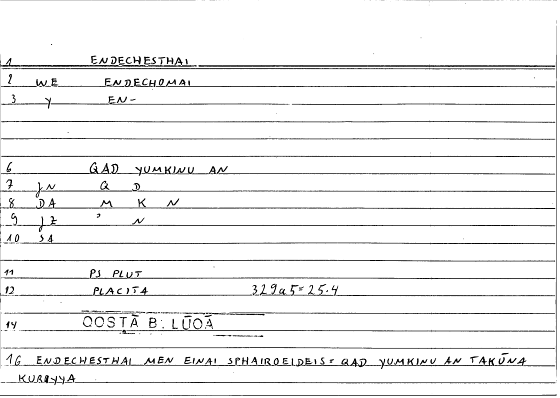 1 ENDECHESTHAI
2 WE ENDECHOMAI
3 Y EN-
6 QAD YUMKINU AN
7 JN Q D
8 DA M K N
9 JZ ' N
10 SA
11 PS PLUT
12 PLACITA 329a5=25.4
14 QOSTĀ B. LŪQĀ
16 ENDECHESTHAI MEN EINAI SPHAIROEIDEIS= QAD YUMKINU AN TAKŪNA
KURIYYA